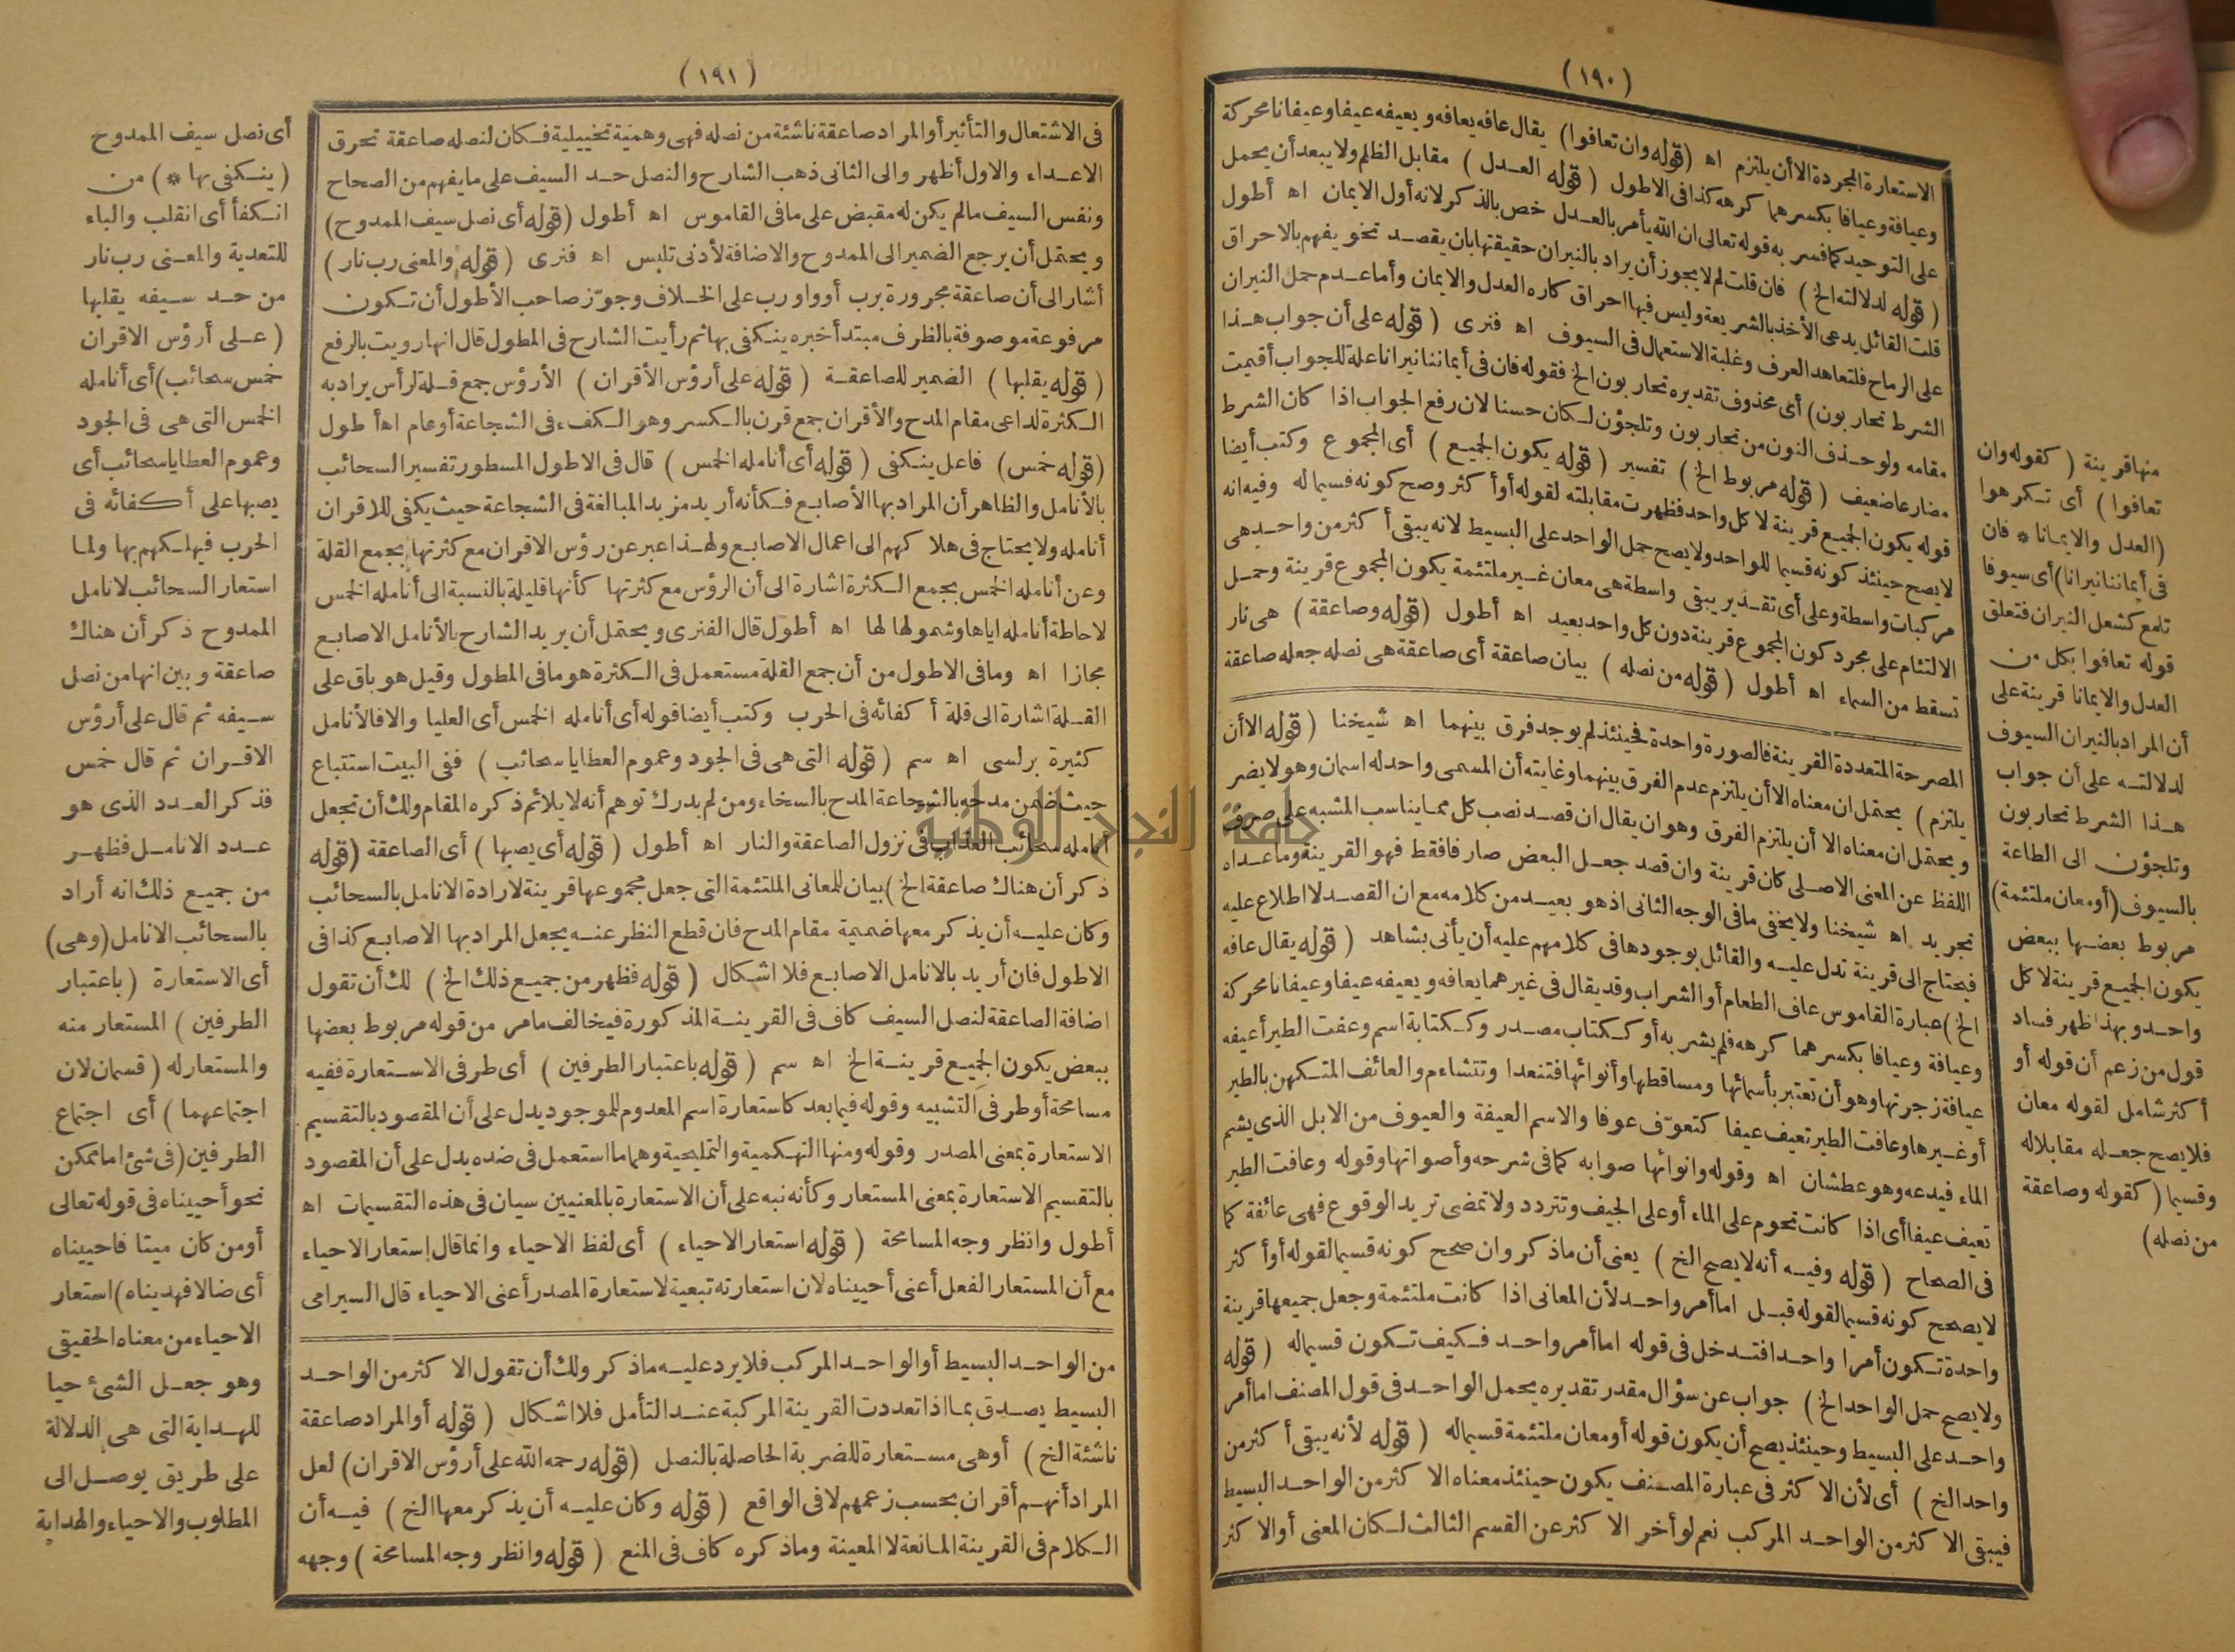 (١٩٠)
الاستعارة المجردة الا أن يلتزم اه (قوله وان تعافوا) يقال عافه يعافه ويعيفه عيفا وعيفانا محركة
وعيافة وعيافا بكسرهما كرهه كذا فى الاطول (قوله العدل) مقابل الظلم ولا يبعد أن يحمل
على التوحيد كما فسر به قوله تعالى ان الله يأمر بالعدل خص بالذكر لانه أول الايمان اه أطول
(قوله لدلالته الخ) فان قلت لم لا يجوز أن يراد بالنيران حقيقتها بان يقصد تخويفهم بالاحراق
قلت القائل يدعى الأخذ بالشريعة وليس فيها احراق كاره العدل والايمان وأما عدم حمل النيران
على الرماح فلتعاهد العرف وغلبة الاستعمال فى السيوف اه فنرى (قوله على أن جواب هذا
الشرط تحاربون) أى محذوف تقديره تحاربون الخ فقوله فان فى أيماننا نيرانا علة للجواب أقيمت
مقامه ولو حذف النون من تحاربون وتلجؤن لكان حسنا لان رفع الجواب اذا كان الشرط
مضارعا ضعيف (قوله مربوط الخ) تفسير (قوله يكون الجميع) أى المجموع وكتب أيضا
قوله يكون الجميع قرينة لا كل واحد فظهرت مقابلته لقوله أو أكثر وصح كونه قسيما له وفيه انه
لا يصح حينئذ كونه قسيما للواحد ولا يصح حمل الواحد على البسيط لانه يبقى أكثر من واحد هى
مركبات واسطة وعلى أى تقدير يبقى واسطة هى معان غير ملتئمة يكون المجموع قرينة وحمل
الالتئام على مجرد كون المجموع قرينة دون كل واحد بعيد اه أطول (قوله وصاعقة) هى نار
تسقط من السماء اه أطول (قوله من نصله) بيان صاعقة أى صاعقة هى نصله جعله صاعقة
المصرحة المتعددة القرينة فالصورة واحدة فحينئذ لم يوجد فرق بينهما اه شيخنا (قوله الا أن
يلتزم) يحتمل ان معناه الا أن يلتزم عدم الفرق بينهما وغايته أن المسمى واحد له اسمان وهو لا يضر
ويحتمل ان معناه الا أن يلتزم الفرق وهو ان يقال ان قصد نصب كل مما يناسب المشبه على صرف
اللفظ عن المعنى الاصلى كان قرينة وان قصد جعل البعض صارفا فقط فهو القرينة وما عداه
تجريد اه شيخنا ولا يخفى ما فى الوجه الثانى اذ هو بعيد من كلامه مع ان القصد لا اطلاع عليه
فيحتاج الى قرينة تدل عليه والقائل بوجودها فى كلامهم عليه أن يأتى بشاهد (قوله يقال عافه
الخ) عبارة القاموس عاف الطعام أو الشراب وقد يقال فى غيرهما يعافه ويعيفه عيفا وعيفانا محركة
وعيافة وعيافا بكسرهما كرهه فلم يشربه أو ككتاب مصدر وككتابة اسم وعفت الطير أعيفه
عيافة زجرتها وهو أن تعتبر بأسمائها ومساقطها وأنوائها فتتعدا وتتشاءم والعائف المتكهن بالطير
أو غيرها وعافت الطير تعيف عيفا كتعوّف عوفا والاسم العيفة والعيوف من الابل الذى يشم
الماء فيدعه وهو عطشان اه وقوله وانوائها صوابه كما فى شرحه وأصواتها وقوله وعافت الطير
تعيف عيفا أى اذا كانت تحوم على الماء أو على الجيف وتتردد ولا تمضى تريد الوقوع فهى عائفة كما
فى الصحاح (قوله وفيه أنه لا يصح الخ) يعنى أن ما ذكر وان صحح كونه قسيما لقوله أو أكثر
لا يصحح كونه قسيما لقوله قبل اما أمر واحد لأن المعانى اذا كانت ملتئمة وجعل جميعها قرينة
واحدة تكون أمرا واحدا فتدخل فى قوله اما أمر واحد فكيف تكون قسيما له (قوله
ولا يصح حمل الواحد الخ) جواب عن سؤال مقدر تقديره يحمل الواحد فى قول المصنف اما أمر
واحد على البسيط وحينئذ يصح أن يكون قوله أو معان ملتئمة قسيما له (قوله لأنه يبقى أكثر من
واحد الخ) أى لأن الاكثر فى عبارة المصنف يكون حينئذ معناه الاكثر من الواحد البسيط
فيبقى الاكثر من الواحد المركب نعم لو أخر الاكثر عن القسم الثالث لكان المعنى أو الاكثر
منها قرينة (كقوله وان
تعافوا) أى تكرهوا
(العدل والايمانا * فان
فى أيماننا نيرانا) أى سيوفا
تلمع كشعل النيران فتعلق
قوله تعافوا بكل من
العدل والايمانا قرينة على
أن المراد بالنيران السيوف
لدلالته على أن جواب
هذا الشرط تحاربون
وتلجؤن الى الطاعة
بالسيوف (أو معان ملتئمة)
مربوط بعضها ببعض
يكون الجميع قرينة لا كل
واحد وبهذا ظهر فساد
قول من زعم أن قوله أو
أكثر شامل لقوله معان
فلا يصح جعله مقابلا له
وقسيما (كقوله وصاعقة
من نصله)
(١٩١)
فى الاشتعال والتأثير أو المراد صاعقة ناشئة من نصله فهى وهمية تخييلية فكان لنصله صاعقة تحرق
الاعداء والاول أظهر والى الثانى ذهب الشارح والنصل حد السيف على ما يفهم من الصحاح
ونفس السيف ما لم يكن له مقبض على ما فى القاموس اه أطول (قوله أى نصل سيف الممدوح)
ويحتمل أن يرجع الضمير الى الممدوح والاضافة لأدنى تلبس اه فنرى (قوله والمعنى رب نار)
أشار الى أن صاعقة مجرورة برب أو واو رب على الخلاف وجوّز صاحب الأطول أن تكون
مرفوعة موصوفة بالظرف مبتدأ خبره ينكفى بها ثم رأيت الشارح فى المطول قال انها رويت بالرفع
(قوله يقلبها) الضمير للصاعقة (قوله على أرؤس الأقران) الأرؤس جمع قلة لرأس يراد به
الكثرة لداعى مقام المدح والأقران جمع قرن بالكسر وهو الكفء فى الشجاعة أو عام اه أطول
(قوله خمس) فاعل ينكفى (قوله أى أنامله الخمس) قال فى الاطول المسطور تفسير السحائب
بالأنامل والظاهر أن المراد بها الأصابع فكأنه أريد مزيد المبالغة فى الشجاعة حيث يكفى للاقران
أنامله ولا يحتاج فى هلاكهم الى اعمال الاصابع ولهذا عبر عن رؤس الاقران مع كثرتها بجمع القلة
وعن أنامله الخمس بجمع الكثرة اشارة الى أن الرؤس مع كثرتها كأنها قليلة بالنسبة الى أنامله الخمس
لاحاطة أنامله اياها وشمولها لها اه أطول قال الفنرى ويحتمل أن يريد الشارح بالأنامل الاصابع
مجازا اه وما فى الاطول من أن جمع القلة مستعمل فى الكثرة هو ما فى المطول وقيل هو باق على
القلة اشارة الى قلة أكفائه فى الحرب وكتب أيضا قوله أى أنامله الخمس أى العليا والا فالأنامل
كثيرة برلسى اه سم (قوله التى هى فى الجود وعموم العطايا سحائب) ففى البيت استتباع
حيث ضمن مدحه بالشجاعة المدح بالسخاء ومن لم يدرك توهم أنه لا يلائم ذكره المقام ولك أن تجعل
أنامله سحائب العذاب فى نزول الصاعقة والنار اه أطول (قوله أى يصبها) أى الصاعقة (قوله
ذكر أن هناك صاعقة الخ) بيان للمعانى الملتئمة التى جعل مجموعها قرينة لارادة الانامل بالسحائب
وكان عليه أن يذكر معها ضميمة مقام المدح فان قطع النظر عنه يجعل المراد بها الاصابع كذا فى
الاطول فان أريد بالانامل الاصابع فلا اشكال (قوله فظهر من جميع ذلك الخ) لك أن تقول
اضافة الصاعقة لنصل السيف كاف فى القرينة المذكورة فيخالف ما مر من قوله مربوط بعضها
ببعض يكون الجميع قرينة الخ اه سم (قوله باعتبار الطرفين) أى طرفى الاستعارة ففيه
مسامحة أو طرفى التشبيه وقوله فيما بعد كاستعارة اسم المعدوم للموجود يدل على أن المقصود بالتقسيم
الاستعارة بمعنى المصدر وقوله ومنها التهكمية والتمليحية وهما ما استعمل فى ضده يدل على أن المقصود
بالتقسيم الاستعارة بمعنى المستعار وكأنه نبه على أن الاستعارة بالمعنيين سيان فى هذه التقسيمات اه
أطول وانظر وجه المسامحة (قوله استعار الاحياء) أى لفظ الاحياء وانما قال استعار الاحياء
مع أن المستعار الفعل أعنى أحييناه لان استعارته تبعية لاستعارة المصدر أعنى الاحياء قال السيرامى
من الواحد البسيط أو الواحد المركب فلا يرد عليه ما ذكر ولك أن تقول الاكثر من الواحد
البسيط يصدق بما اذا تعددت القرينة المركبة عند التأمل فلا اشكال (قوله أو المراد صاعقة
ناشئة الخ) أو هى مستعارة للضربة الحاصلة بالنصل (قوله رحمه الله على أرؤس الاقران) لعل
المراد أنهم أقران بحسب زعمهم لا فى الواقع (قوله وكان عليه أن يذكر معها الخ) فيه أن
الكلام فى القرينة المانعة لا المعينة وما ذكره كاف فى المنع (قوله وانظر وجه المسامحة) وجهه
أى نصل سيف الممدوح
(ينكفى بها *) من
انكفأ أى انقلب والباء
للتعدية والمعنى رب نار
من حد سيفه يقلبها
(على أرؤس الاقران
خمس سحائب) أى أنامله
الخمس التى هى فى الجود
وعموم العطايا سحائب أى
يصبها على أكفائه فى
الحرب فيهلكهم بها ولما
استعار السحائب لانامل
الممدوح ذكر أن هناك
صاعقة وبين انها من نصل
سيفه ثم قال على أرؤس
الاقران ثم قال خمس
فذكر العدد الذى هو
عدد الانامل فظهر
من جميع ذلك انه أراد
بالسحائب الانامل (وهى)
أى الاستعارة (باعتبار
الطرفين) المستعار منه
والمستعار له (قسمان لان
اجتماعهما) أى اجتماع
الطرفين (فى شئ اما ممكن
نحو أحييناه فى قوله تعالى
أومن كان ميتا فاحييناه
أى ضالا فهديناه) استعار
الاحياء من معناه الحقيقى
وهو جعل الشئ حيا
للهداية التى هى الدلالة
على طريق يوصل الى
المطلوب والاحياء والهداية
جامعة النجاح الوطنية